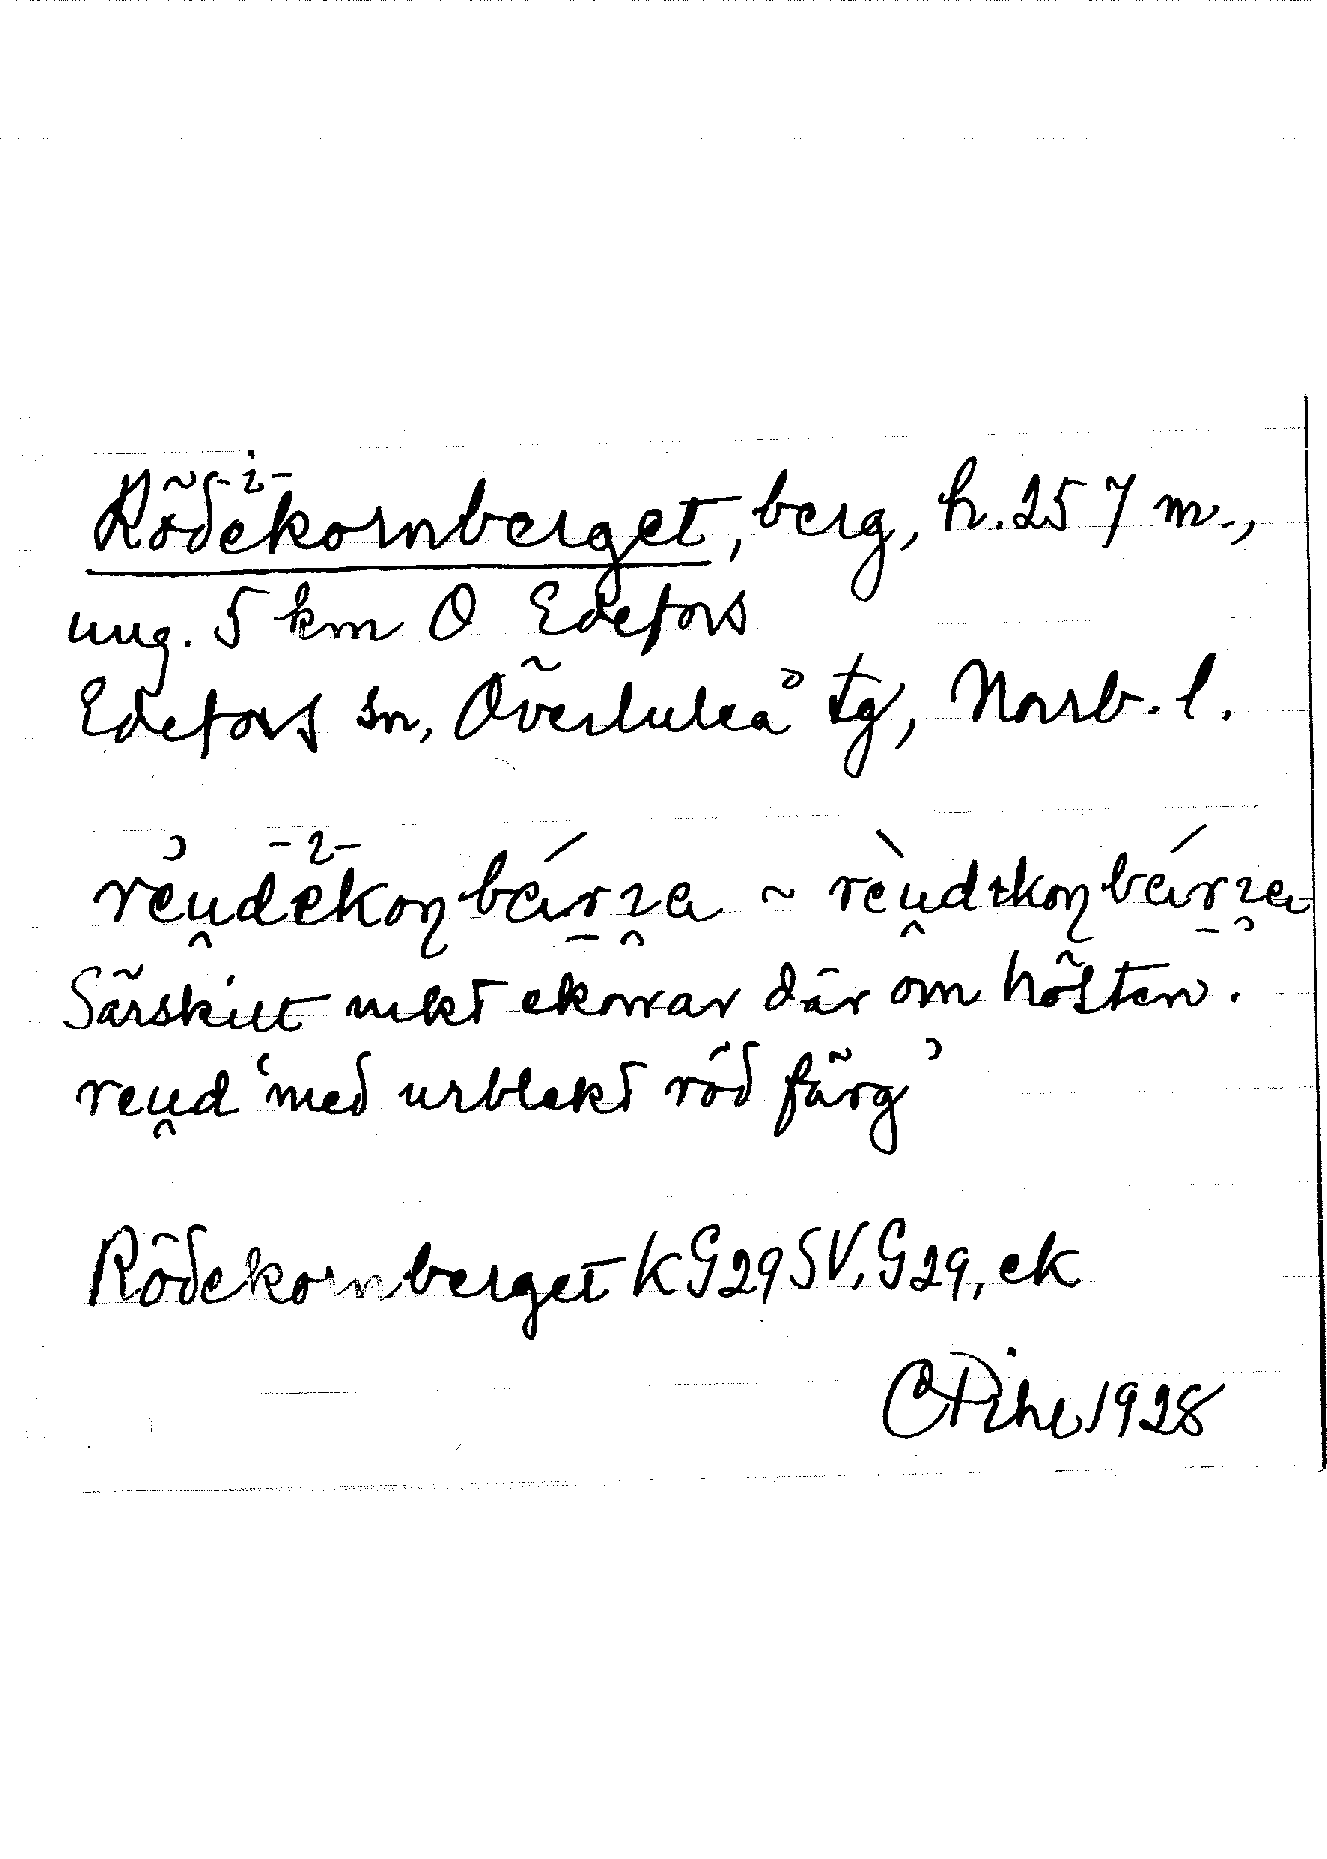 Rödekornberget, berg, h. 257 m.,
ung. 5 km O Edefors
Edefors sn, Överluleå tg, Norrb. l.
Särskilt mkt ekorrar där om hösten.
reud 'med urblekt röd färg'
Rödekornberget KG29SV, G29, ek
CPihl 1928